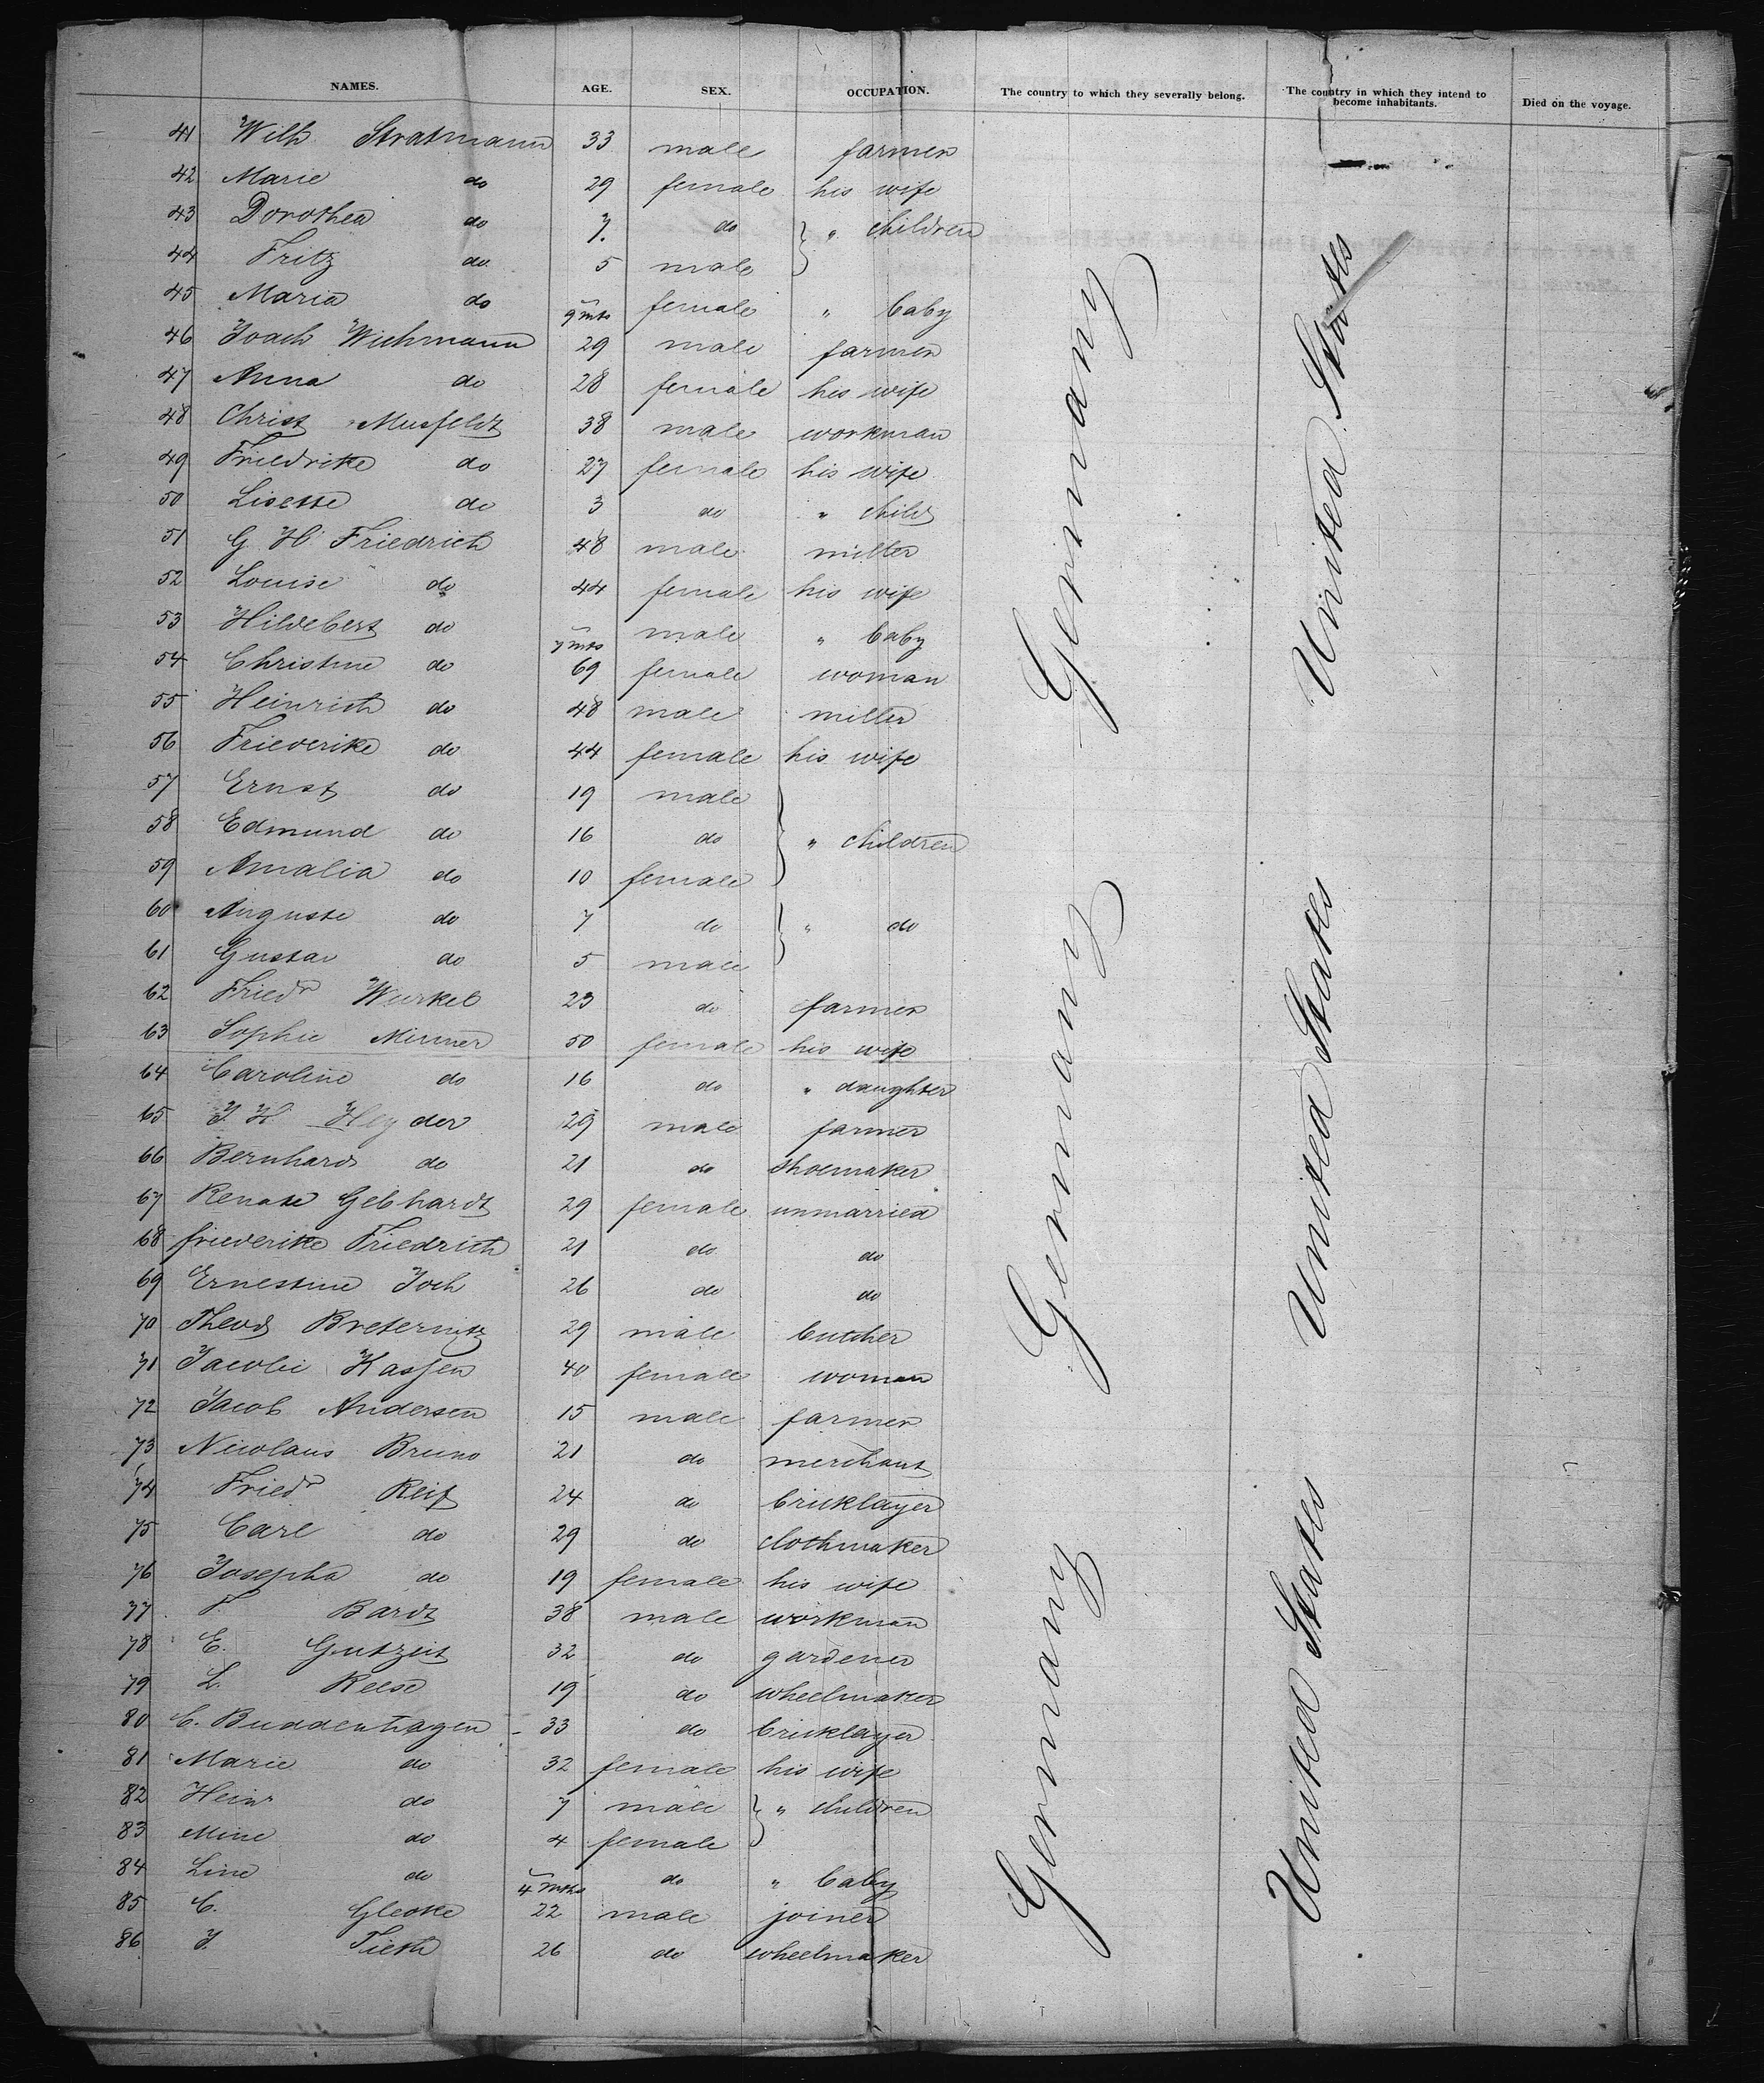 NAMES. AGE. SEX. OCCUPATION. The country to which they severally belong. The country in which they intend to become inhabitants. Died on the voyage.
41 Wilh. Stratmann 33 male farmer
42 Marie do 29 female his wife
43 Dorothea do 7. do } " children
44 Fritz do 5 male
45 Maria do 9 mts female " baby
46 Joach Wichmann 29 male farmer
47 Anna do 28 female his wife
48 Christ Musfeldt 38 male workman
49 Friedrike do 27 female his wife
50 Lisette do 3 do " child
51 G. H. Friedrich 48 male miller
52 Louise do 44 female his wife
53 Hildebert do 7 mts male " baby
54 Christine do 69 female woman
55 Heinrich do 48 male miller
56 Friederike do 44 female his wife
57 Ernst do 19 male
58 Edmund do 16 do } " children
59 Amalia do 10 female
60 Auguste do 7 do } " do
61 Gustav do 5 male
62 Friedr Wurkel 23 do farmer
63 Sophie Minner 50 female his wife
64 Caroline do 16 do " daughter
65 J. H. Heyder 29 male farmer
66 Bernhard do 21 do shoemaker
67 Renate Gebhardt 29 female unmarried
68 friederike Friedrich 21 do do
69 Ernestine Joch 26 do do
70 Theod Breternitz 29 male butcher
71 Jacobi Kassen 40 female woman
72 Jacob Andersen 15 male farmer
73 Nicolaus Bruno 21 do merchant
74 Friedr Reif 24 do bricklayer
75 Carl do 29 do clothmaker
76 Josepha do 19 female his wife
77 F. Bardt 38 male workman
78 E. Gutzeit 32 do gardener
79 L. Reese 19 do wheelmaker
80 C. Buddenhagen 33 do bricklayer
81 Marie do 32 female his wife
82 Heinr do 7 male } " children
83 Mine do 4 female
84 Line do 4 mths do " baby
85 C. Gleoke 22 male joiner
86 J. Tieth 26 do wheelmaker
Germany Germany Germany
United States United States United States